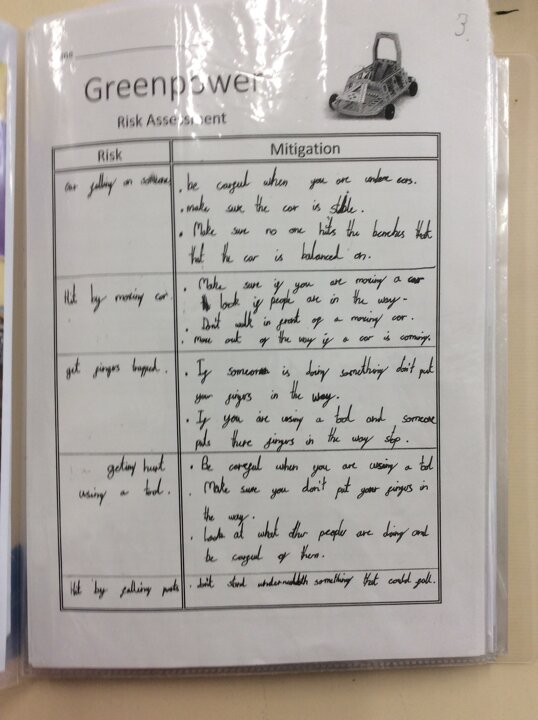 3.
me
Greenpower
Risk Assessment
Risk
Mitigation
car falling on someone
. be careful when you are under cars.
. make sure the car is stable.
. Make sure no one hits the benches that
that the car is balanced on.
Hit by moving car.
. Make sure if you are moving a car
look if people are in the way.
. Don't walk in front of a moving car.
. move out of the way if a car is coming.
get fingers trapped.
. If someone is doing something don't put
your fingers in the way.
. If you are using a tool and someone
puts there fingers in the way stop.
geting hurt
using a tool.
. Be careful when you are using a tool
. Make sure you don't put your fingers in
the way.
. Look at what other people are doing and
be careful of them.
Hit by falling parts
. don't stand underneath something that could fall.